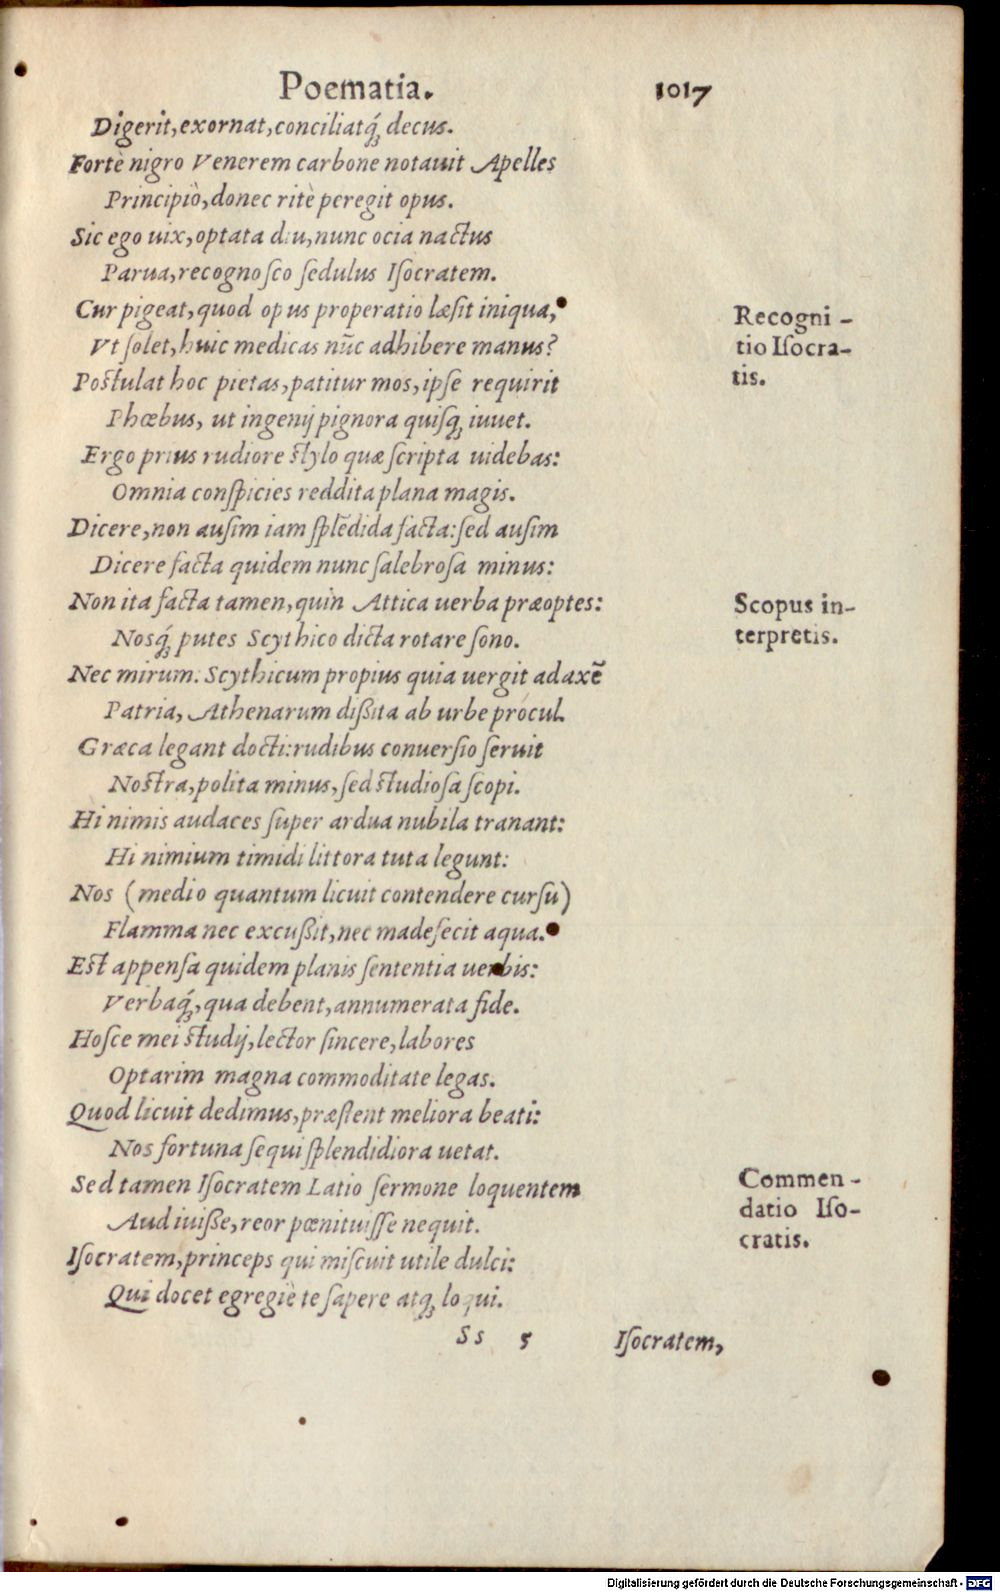 Poematia. 1017
Digerit, exornat, conciliatq́; decus.
Fortè nigro Venerem carbone notauit Apelles
Principiò, donec ritè peregit opus.
Sic ego uix, optata diu, nunc ocia nactus
Parua, recognosco sedulus Isocratem.
Cur pigeat, quod opus properatio læsit iniqua,
Vt solet, huic medicas nūc adhibere manus?
Recogni-
tio Isocra-
tis.
Postulat hoc pietas, patitur mos, ipse requirit
Phœbus, ut ingenij pignora quisq; iuuet.
Ergo prius rudiore stylo quæ scripta uidebas:
Omnia conspicies reddita plana magis.
Dicere, non ausim iam splēdida facta: sed ausim
Dicere facta quidem nunc salebrosa minus:
Non ita facta tamen, quin Attica uerba præoptes:
Nosq́; putes Scythico dicta rotare sono.
Scopus in-
terpretis.
Nec mirum. Scythicum propius quia uergit ad axē
Patria, Athenarum dißita ab urbe procul.
Græca legant docti: rudibus conuersio seruit
Nostra, polita minus, sed studiosa scopi.
Hi nimis audaces super ardua nubila tranant:
Hi nimium timidi littora tuta legunt:
Nos (medio quantum licuit contendere cursu)
Flamma nec excußit, nec madefecit aqua.
Est appensa quidem planis sententia uerbis:
Verbaq́;, qua debent, annumerata fide.
Hosce mei studij, lector sincere, labores
Optarim magna commoditate legas.
Quod licuit dedimus, præstent meliora beati:
Nos fortuna sequi splendidiora uetat.
Sed tamen Isocratem Latio sermone loquentem
Audiuiße, reor pœnituisse nequit.
Commen-
datio Iso-
cratis.
Isocratem, princeps qui miscuit utile dulci:
Qui docet egregiè te sapere atq; loqui.
Ss 5 Isocratem,
Digitalisierung gefördert durch die Deutsche Forschungsgemeinschaft - DFG